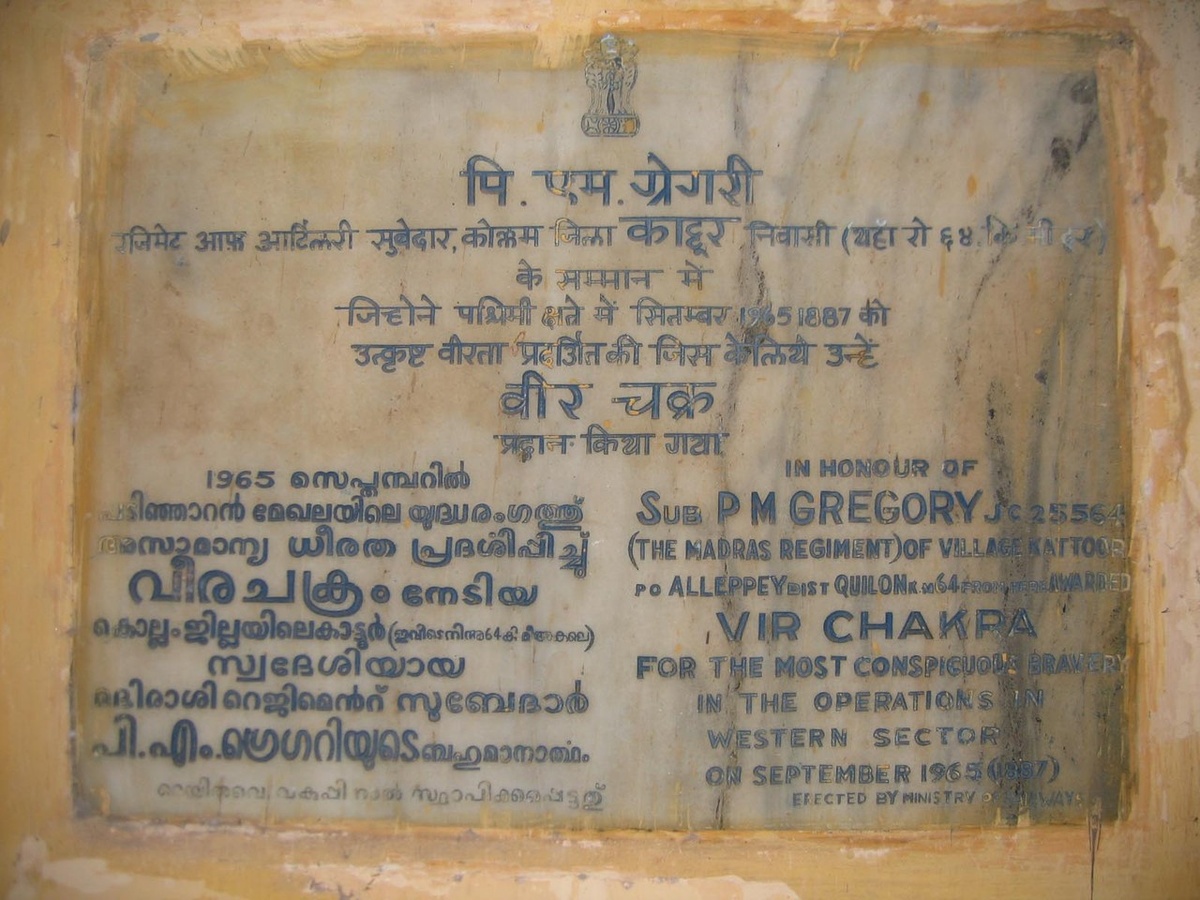 पि. एम. ग्रेगरी
रजिमेट आफ़ आर्टिलरी सुबेदार, कोल्लम जिला काट्टूर निवासी (यहां से ६४ कि मी
के सम्मान में
जिन्होने पश्चिमी क्षते में सितम्बर 1965 1887 को
उत्कृष्ट वीरता प्रदर्शित की जिस केलिये उन्हें
वीर चक्र
प्रदान किया गया
1965 സെപ്തമ്പറിൽ
പടിഞ്ഞാറൻ മേഖലയിലെ യുദ്ധരംഗത്ത്
അസാമാന്യ ധീരത പ്രദർശിപ്പിച്ച്
വീരചക്രം നേടിയ
കൊല്ലം ജില്ലയിലെ കാട്ടൂർ (ഇവിടെനിന്നു 64 കി മീ അകലെ)
സ്വദേശിയായ
മദിരാശി റെജിമെൻറ് സൂബേദാർ
പി. എം. ഗ്രെഗറിയുടെ ബഹുമാനാർത്ഥം
റെയിൽവെ വകുപ്പിനാൽ സ്ഥാപിക്കപ്പെട്ടത്
IN HONOUR OF
SUB P M GREGORY JC 25564
(THE MADRAS REGIMENT) OF VILLAGE KATTOOR
PO ALLEPPEY DIST QUILON K.M 64 FROM HERE AWARDED
VIR CHAKRA
FOR THE MOST CONSPICUOUS BRAVERY
IN THE OPERATIONS IN
WESTERN SECTOR
ON SEPTEMBER 1965 (1887)
ERECTED BY MINISTRY OF RAILWAYS